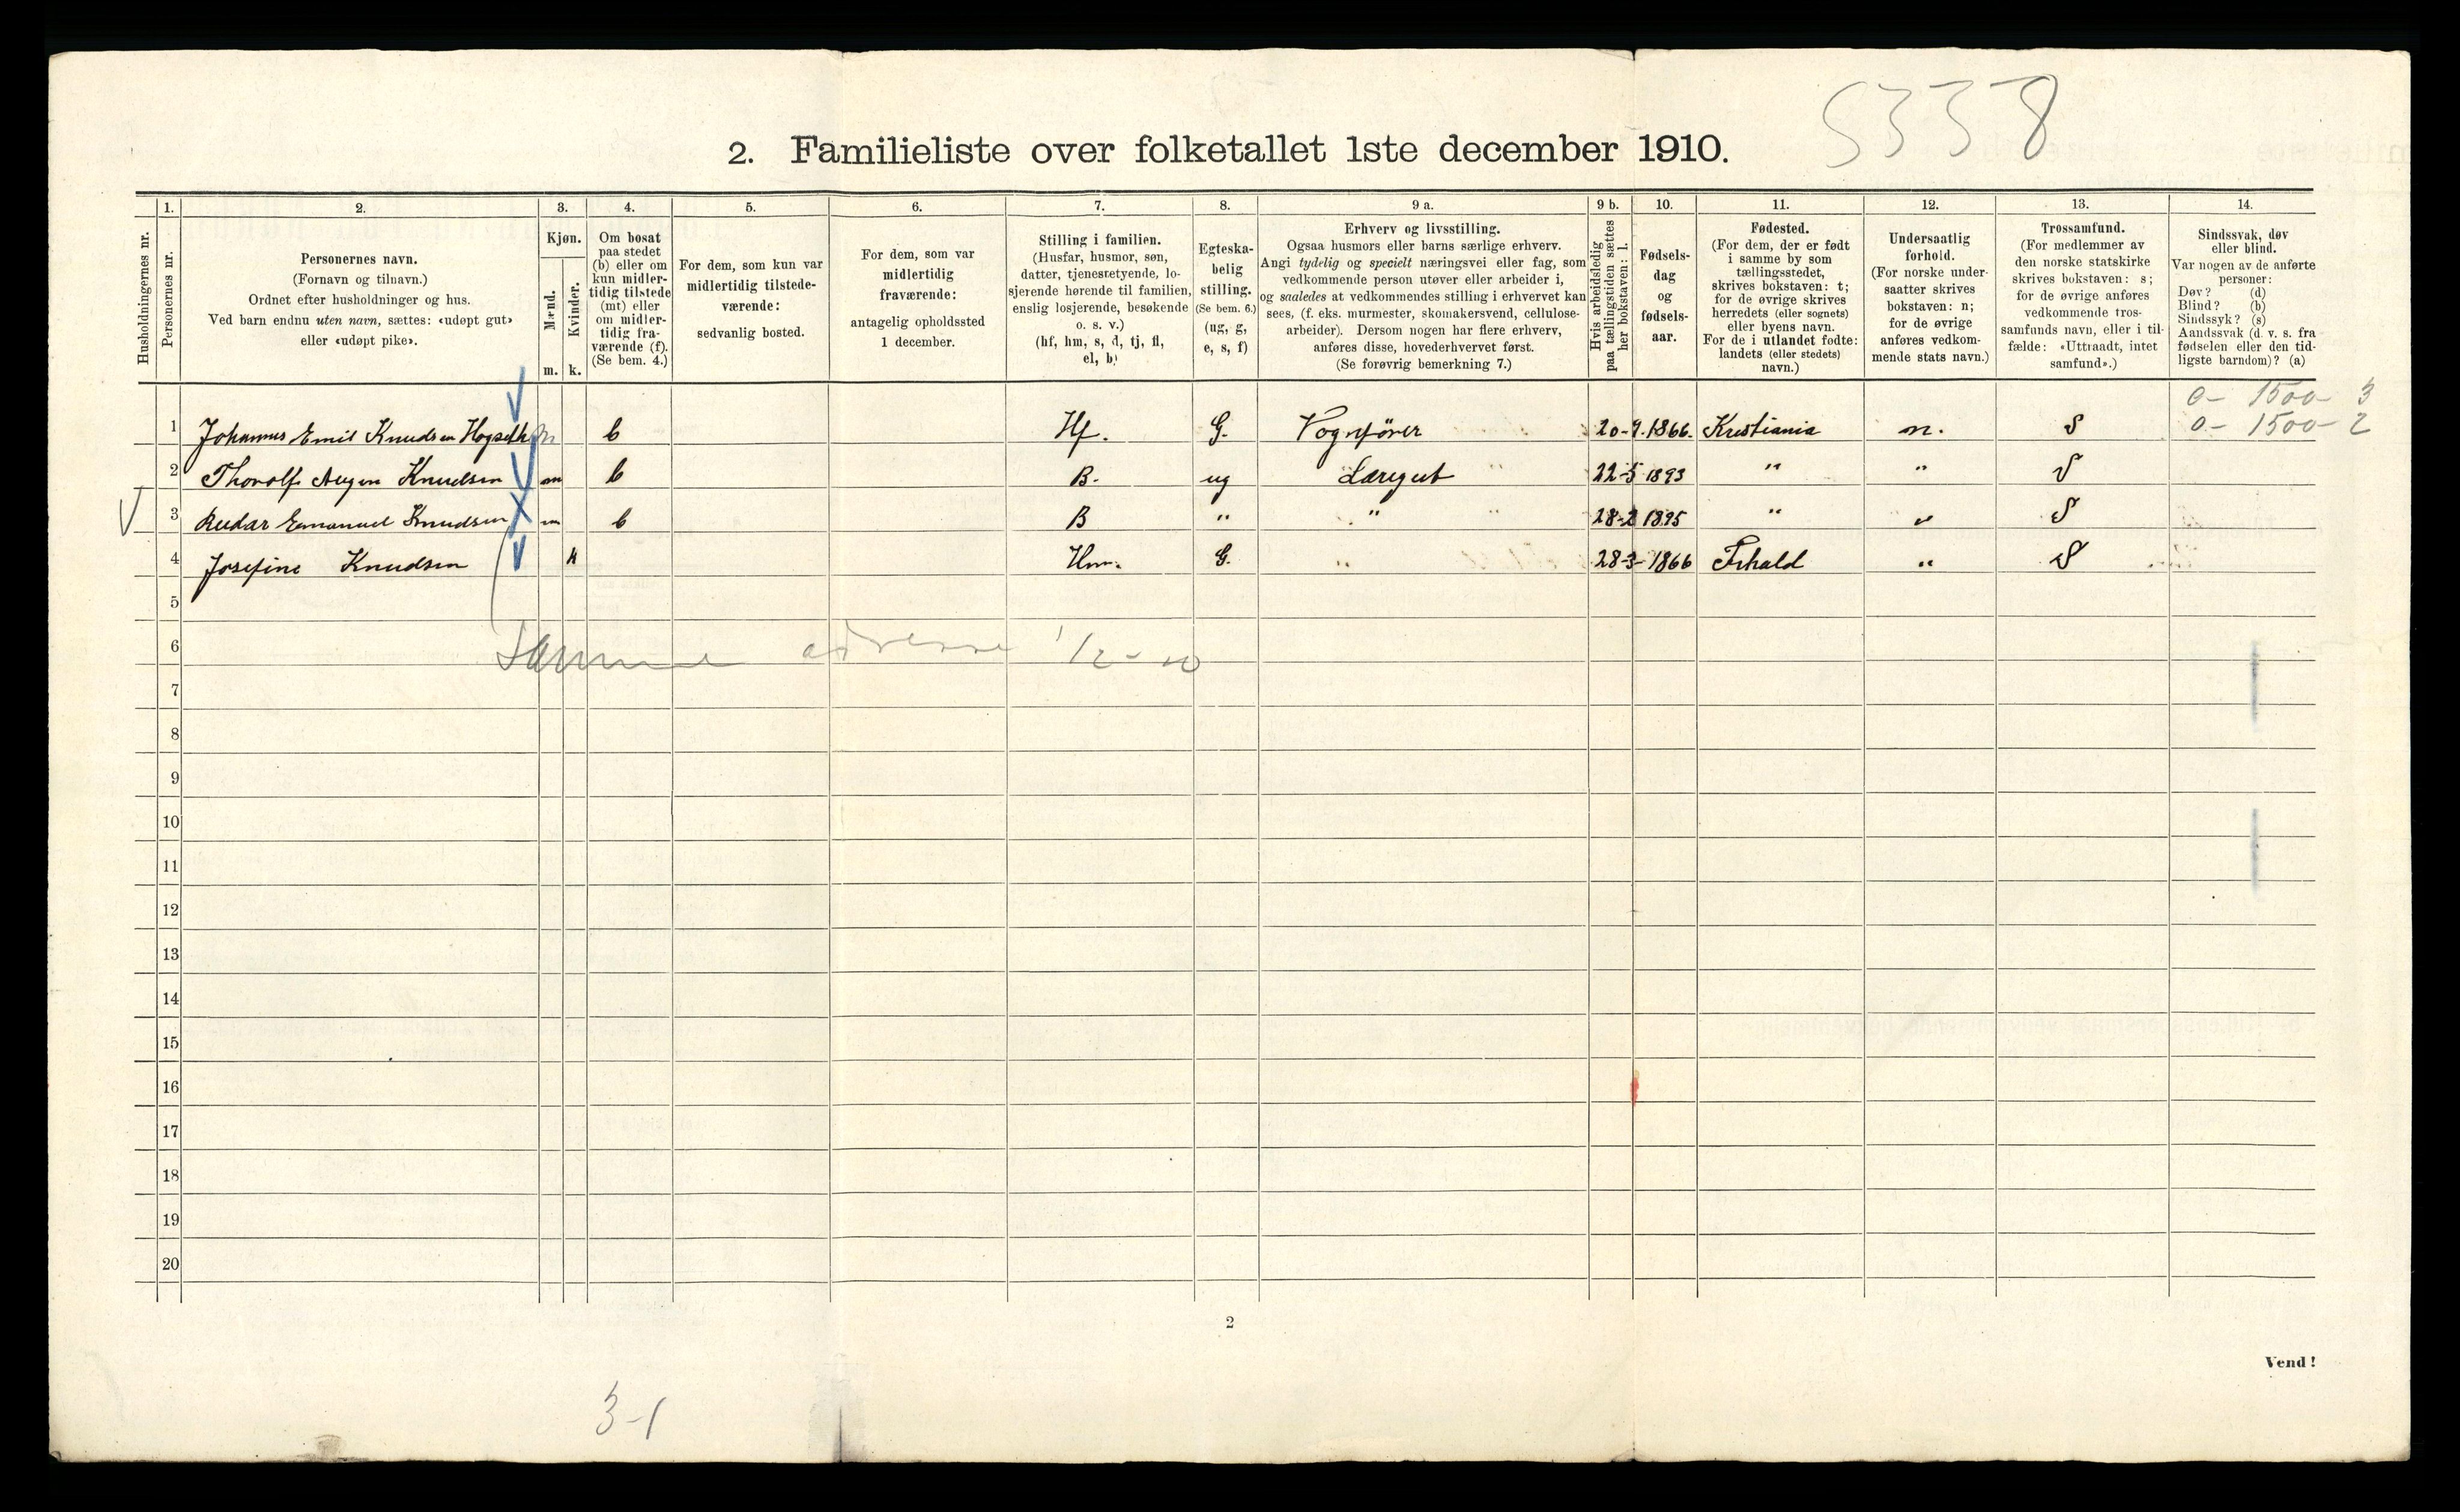 5338
2. Familieliste over folketallet 1ste december 1910.
Husholdningernes nr.
1.
Personernes nr.
2.
Personernes navn.
(Fornavn og tilnavn.)
Ordnet efter husholdninger og hus.
Ved barn endnu uten navn, sættes: «udøpt gut»
eller «udøpt pike».
3.
Kjøn.
Mænd.
Kvinder.
m. k.
4.
Om bosat
paa stedet
(b) eller om
kun midler-
tidig tilstede
(mt) eller
om midler-
tidig fra-
værende (f).
(Se bem. 4.)
5.
For dem, som kun var
midlertidig tilstede-
værende:
sedvanlig bosted.
6.
For dem, som var
midlertidig
fraværende:
antagelig opholdssted
1 december.
7.
Stilling i familien.
(Husfar, husmor, søn,
datter, tjenestetyende, lo-
sjerende hørende til familien,
enslig losjerende, besøkende
o. s. v.)
(hf, hm, s, d, tj, fl,
el, b)
8.
Egteska-
belig
stilling.
(Se bem. 6.)
(ug, g,
e, s, f)
9 a.
Erhverv og livsstilling.
Ogsaa husmors eller barns særlige erhverv.
Angi tydelig og specielt næringsvei eller fag, som
vedkommende person utøver eller arbeider i,
og saaledes at vedkommendes stilling i erhvervet kan
sees, (f. eks. murmester, skomakersvend, cellulose-
arbeider). Dersom nogen har flere erhverv,
anføres disse, hovederhvervet først.
(Se forøvrig bemerkning 7.)
9 b.
Hvis arbeidsledig
paa tællingstiden sættes
her bokstaven: l.
10.
Fødsels-
dag
og
fødsels-
aar.
11.
Fødested.
(For dem, der er født
i samme by som
tællingsstedet,
skrives bokstaven: t;
for de øvrige skrives
herredets (eller sognets)
eller byens navn.
For de i utlandet fødte:
landets (eller stedets)
navn.)
12.
Undersaatlig
forhold.
(For norske under-
saatter skrives
bokstaven: n;
for de øvrige
anføres vedkom-
mende stats navn.)
13.
Trossamfund.
(For medlemmer av
den norske statskirke
skrives bokstaven: s;
for de øvrige anføres
vedkommende tros-
samfunds navn, eller i til-
fælde: «Uttraadt, intet
samfund».)
14.
Sindssvak, døv
eller blind.
Var nogen av de anførte
personer:
Døv? (d)
Blind? (b)
Sindssyk? (s)
Aandssvak (d. v. s. fra
fødselen eller den tid-
ligste barndom)? (a)
0- 1500- 3
1 Johannes Emil Knudsen m b Hf. G. Vognfører 20-9.1866. Kristiania n. S 0- 1500- 2
2 Thorolf Knudsen m b B. ug Læregut " 22-5 1893 " " S
3 Reidar Emanuel Knudsen m b B " " " 28-2 1895 " " S
4 Josefine Knudsen k Hm. G. " 28-3-1866 " S
5
6 Samme adresse 1/2-10
7
8
9
10
11
12
13
14
15
16
17
18
19
20
2
Vend!
3-1